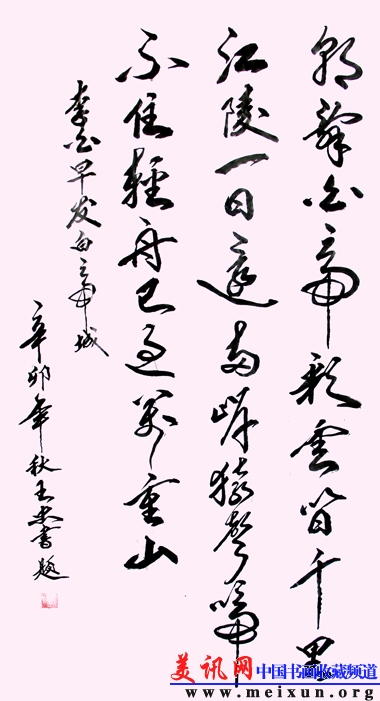 朝辭白帝彩雲間千里
江陵一日還兩岸猿聲啼
不住輕舟已過萬重山
李白早发白帝城
辛卯年秋王書題
美讯网 中国书画收藏频道
www.meixun.org